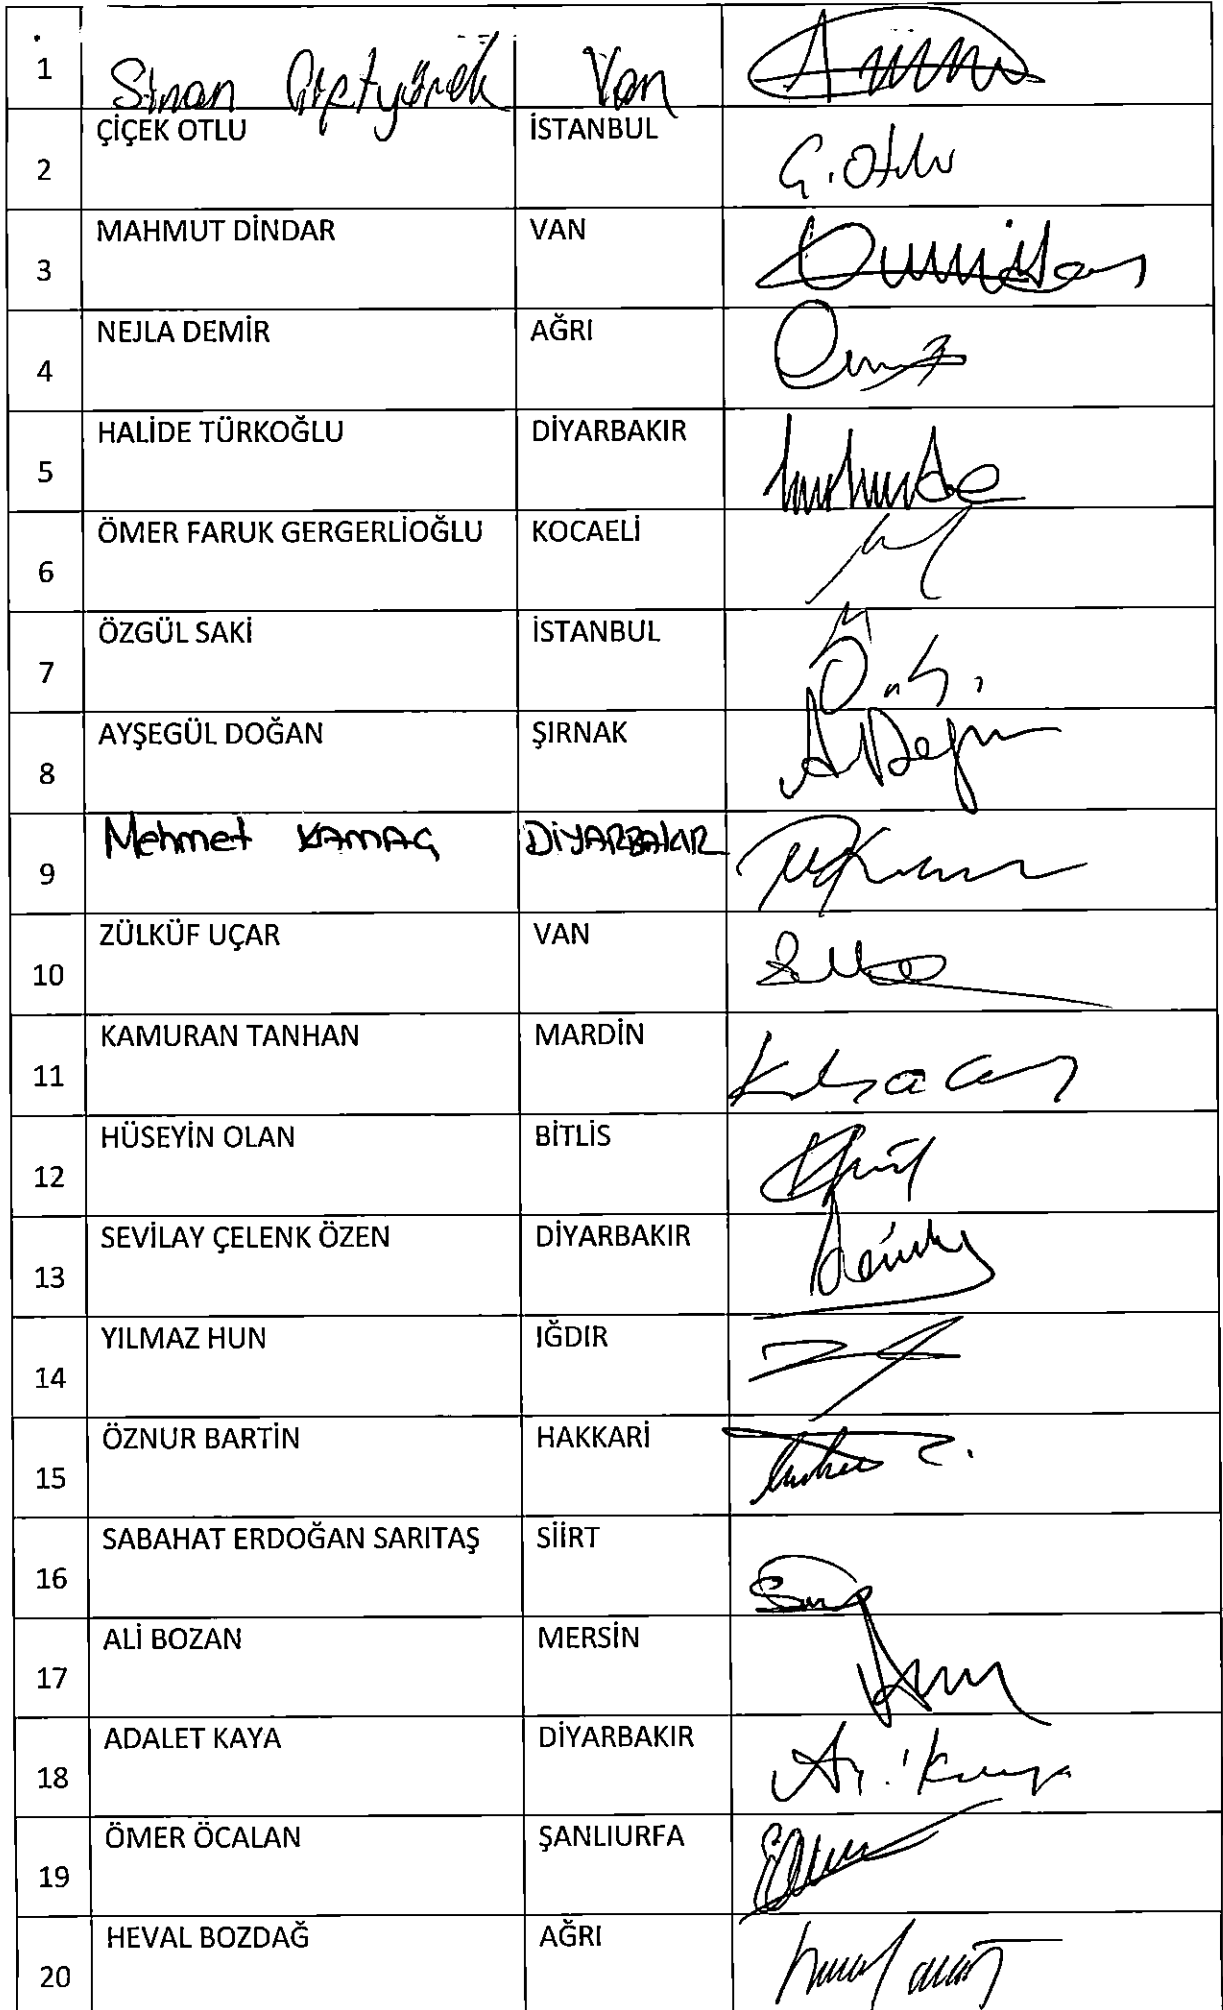 1 Sinan Çiftyürek Van
2 ÇİÇEK OTLU İSTANBUL Ç. Otlu
3 MAHMUT DİNDAR VAN
4 NEJLA DEMİR AĞRI
5 HALİDE TÜRKOĞLU DİYARBAKIR
6 ÖMER FARUK GERGERLİOĞLU KOCAELİ
7 ÖZGÜL SAKİ İSTANBUL
8 AYŞEGÜL DOĞAN ŞIRNAK
9 Mehmet KAMAÇ DİYARBAKIR
10 ZÜLKÜF UÇAR VAN
11 KAMURAN TANHAN MARDİN
12 HÜSEYİN OLAN BİTLİS
13 SEVİLAY ÇELENK ÖZEN DİYARBAKIR
14 YILMAZ HUN IĞDIR
15 ÖZNUR BARTİN HAKKARİ
16 SABAHAT ERDOĞAN SARITAŞ SİİRT
17 ALİ BOZAN MERSİN
18 ADALET KAYA DİYARBAKIR
19 ÖMER ÖCALAN ŞANLIURFA
20 HEVAL BOZDAĞ AĞRI